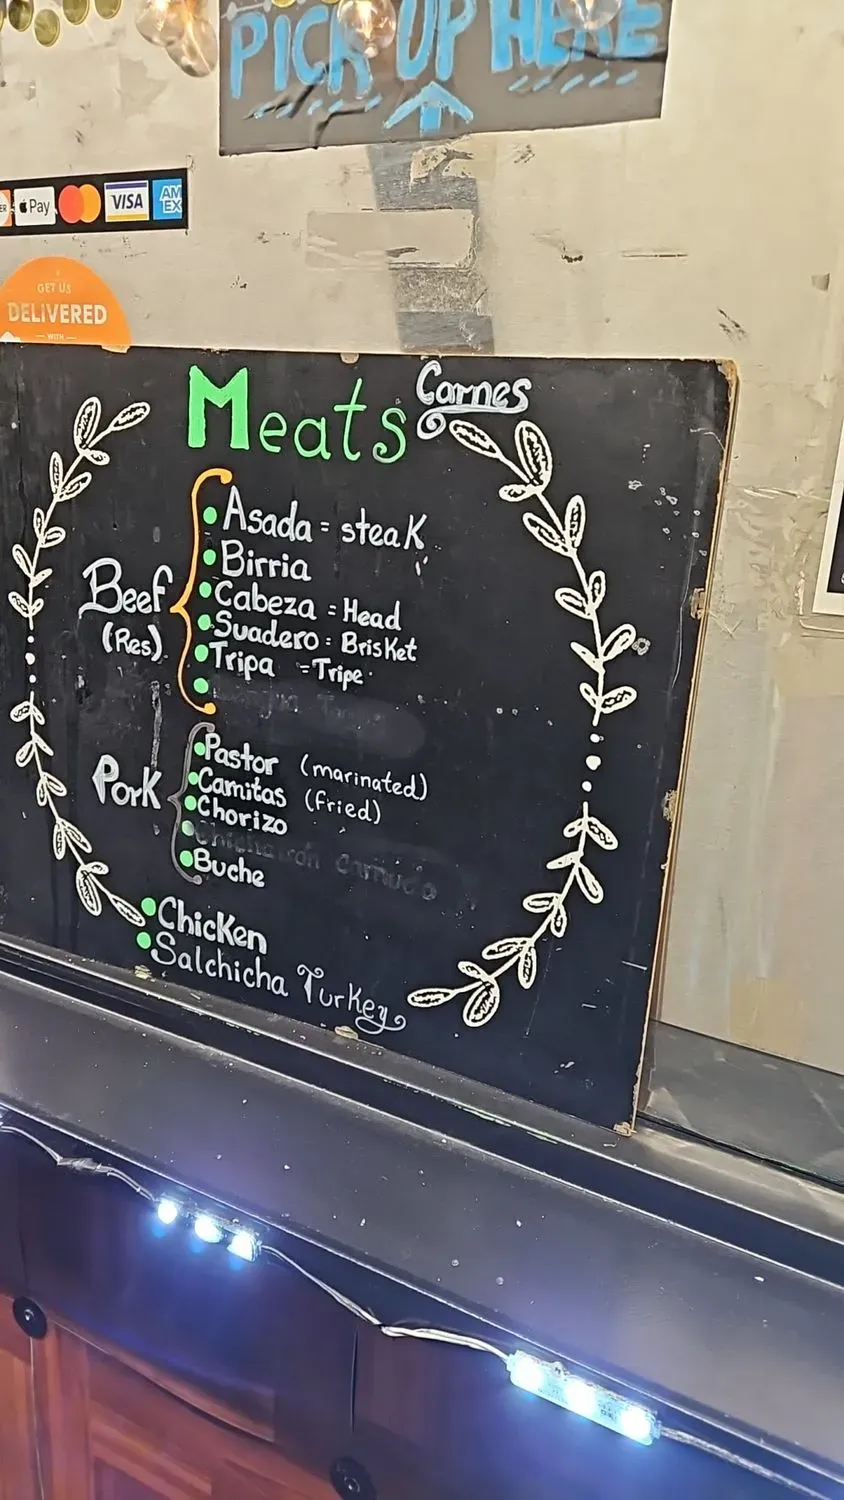 PICK UP HERE
Pay VISA AM EX
GET US
DELIVERED
WITH
Meats Carnes
Beef
(Res)
Asada = steak
Birria
Cabeza = Head
Suadero = Brisket
Tripa = Tripe
Pork
Pastor (marinated)
Carnitas (fried)
Chorizo
Chicharrón Carnudo
Buche
Chicken
Salchicha Turkey